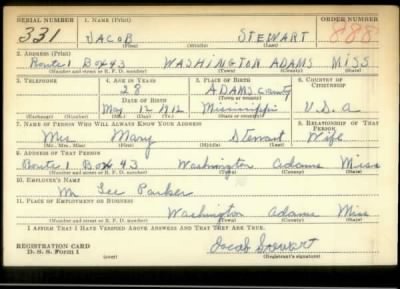 SERIAL NUMBER 1. NAME (Print) ORDER NUMBER
331 JACOB STEWART 888
(First) (Middle) (Last)
2. ADDRESS (Print)
Route 1 Box 43 WASHINGTON ADAMS MISS
(Number and street or R. F. D. number) (Town) (County) (State)
3. TELEPHONE 4. AGE IN YEARS 5. PLACE OF BIRTH 6. COUNTRY OF CITIZENSHIP
28 ADAMS County
DATE OF BIRTH (Town or county)
May 12 1912 Mississippi U.S.a
(Exchange) (Number) (Mo.) (Day) (Yr.) (State or country)
7. NAME OF PERSON WHO WILL ALWAYS KNOW YOUR ADDRESS 8. RELATIONSHIP OF THAT PERSON
Mrs Mary Stewart Wife
(Mr., Mrs., Miss) (First) (Middle) (Last)
9. ADDRESS OF THAT PERSON
Route 1 Box 43 Washington Adams Miss
(Number and street or R. F. D. number) (Town) (County) (State)
10. EMPLOYER'S NAME
Parker
11. PLACE OF EMPLOYMENT OR BUSINESS
Washington Adams Miss
(Number and street or R. F. D. number) (Town) (County) (State)
I AFFIRM THAT I HAVE VERIFIED ABOVE ANSWERS AND THAT THEY ARE TRUE.
REGISTRATION CARD Jacob Stewart
D. S. S. Form 1 (over) (Registrant's signature)